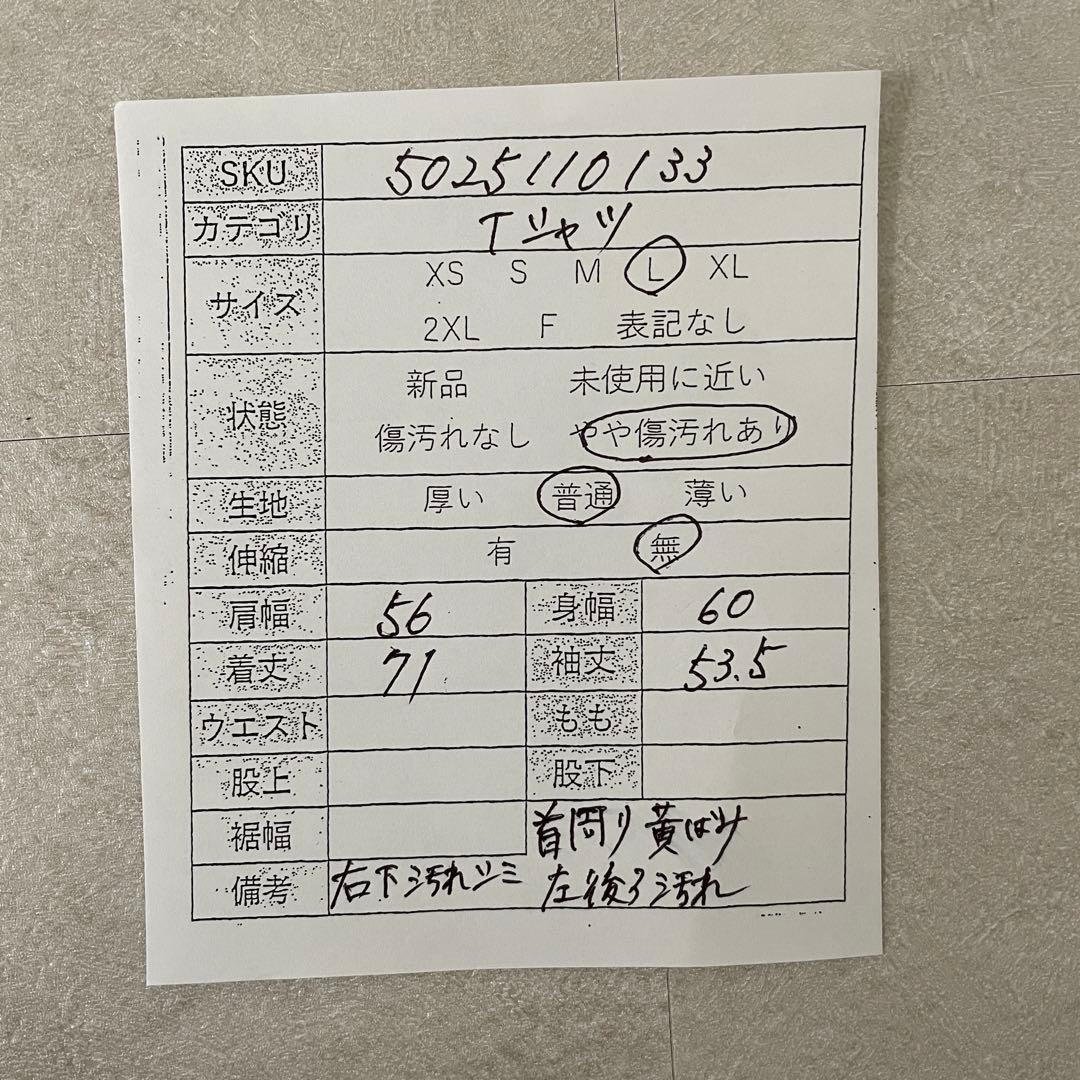 SKU 5025110133
カテゴリ Tシャツ
サイズ XS S M L XL
2XL F 表記なし
状態 新品 未使用に近い
傷汚れなし やや傷汚れあり
生地 厚い 普通 薄い
伸縮 有 無
肩幅 56 身幅 60
着丈 71 袖丈 53.5
ウエスト もも
股上 股下
裾幅 首周り 黄ばみ
備考 右下汚れシミ 左後ろ汚れ